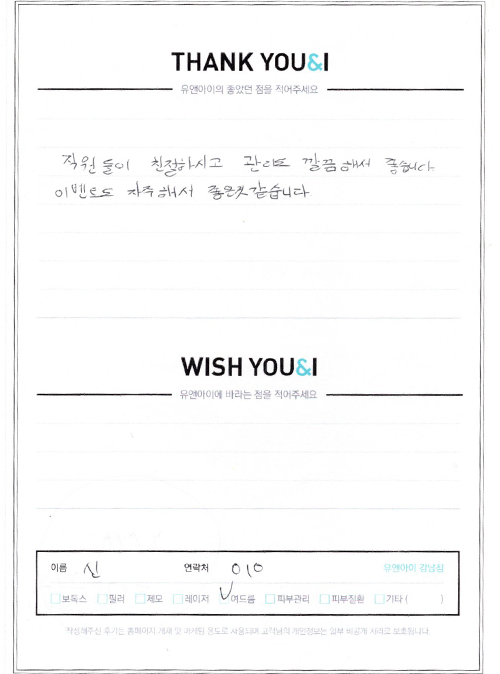 THANK YOU&I
유앤아이의 좋았던 점을 적어주세요
직원들이 친절하시고 관리도 깔끔해서 좋습니다
이벤트도 자주해서 좋은것같습니다
WISH YOU&I
유앤아이에 바라는 점을 적어주세요
이름 신 연락처 010 유앤아이 강남점
보톡스 필러 제모 레이저 여드름 피부관리 피부질환 기타 ( )
작성해주신 후기는 홈페이지 게재 및 마케팅 용도로 사용되며 고객님의 개인정보는 일부 비공개 처리로 보호됩니다.